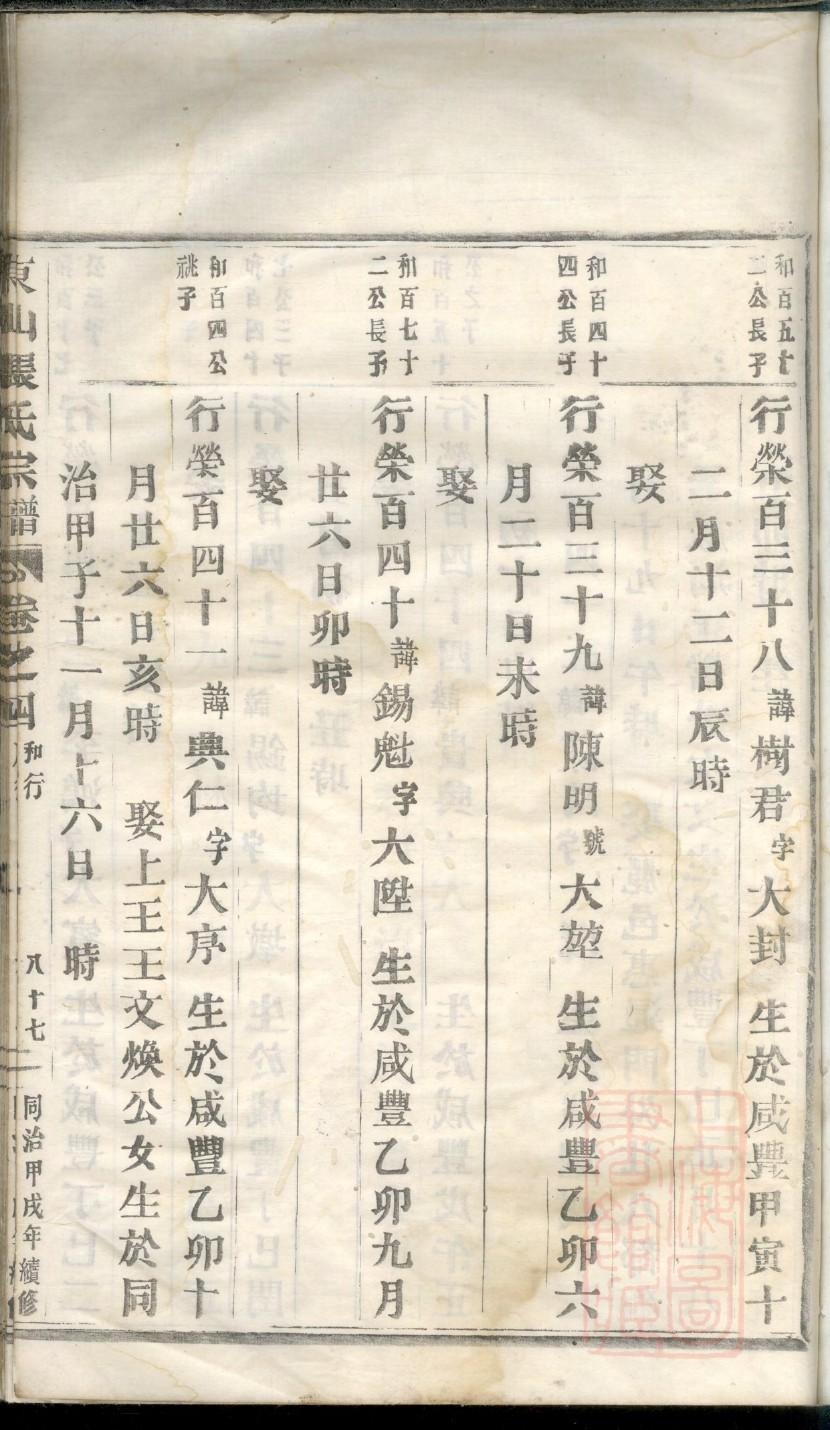 和百五十
二公長子
行榮百三十八諱樹君字大封 生於咸豐甲寅十
二月十二日辰時
娶
和百四十
四公長子
行榮百三十九諱陳明號大堃 生於咸豐乙卯六
月二十日未時
娶
和百七十
二公長子
行榮百四十諱錫魁字大陞 生於咸豐乙卯九月
廿六日卯時
娶
和百四公
祧子
行榮百四十一諱典仁字大序 生於咸豐乙卯十
月廿六日亥時 娶上王王文煥公女生於同
治甲子十一月十六日 時
東山張氏宗譜 卷之四 和行 八十七 同治甲戌年續修
上海圖書館藏